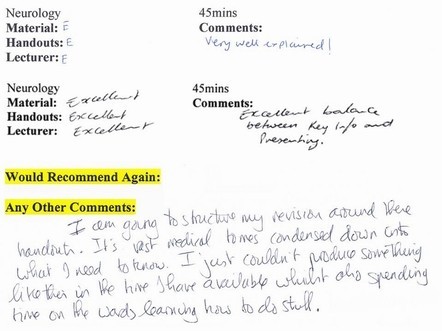 Neurology 45mins
Material: E Comments:
Handouts: E Very well explained!
Lecturer: E
Neurology 45mins
Material: Excellent Comments:
Handouts: Excellent Excellent balance
Lecturer: Excellent between Key Info and
Presenting.
Would Recommend Again:
Any Other Comments:
I am going to structure my revision around these
handouts. It's vast medical tomes condensed down into
what I need to know. I just couldn't produce something
like this in the time I have available whilst also spending
time on the wards learning how to do stuff.